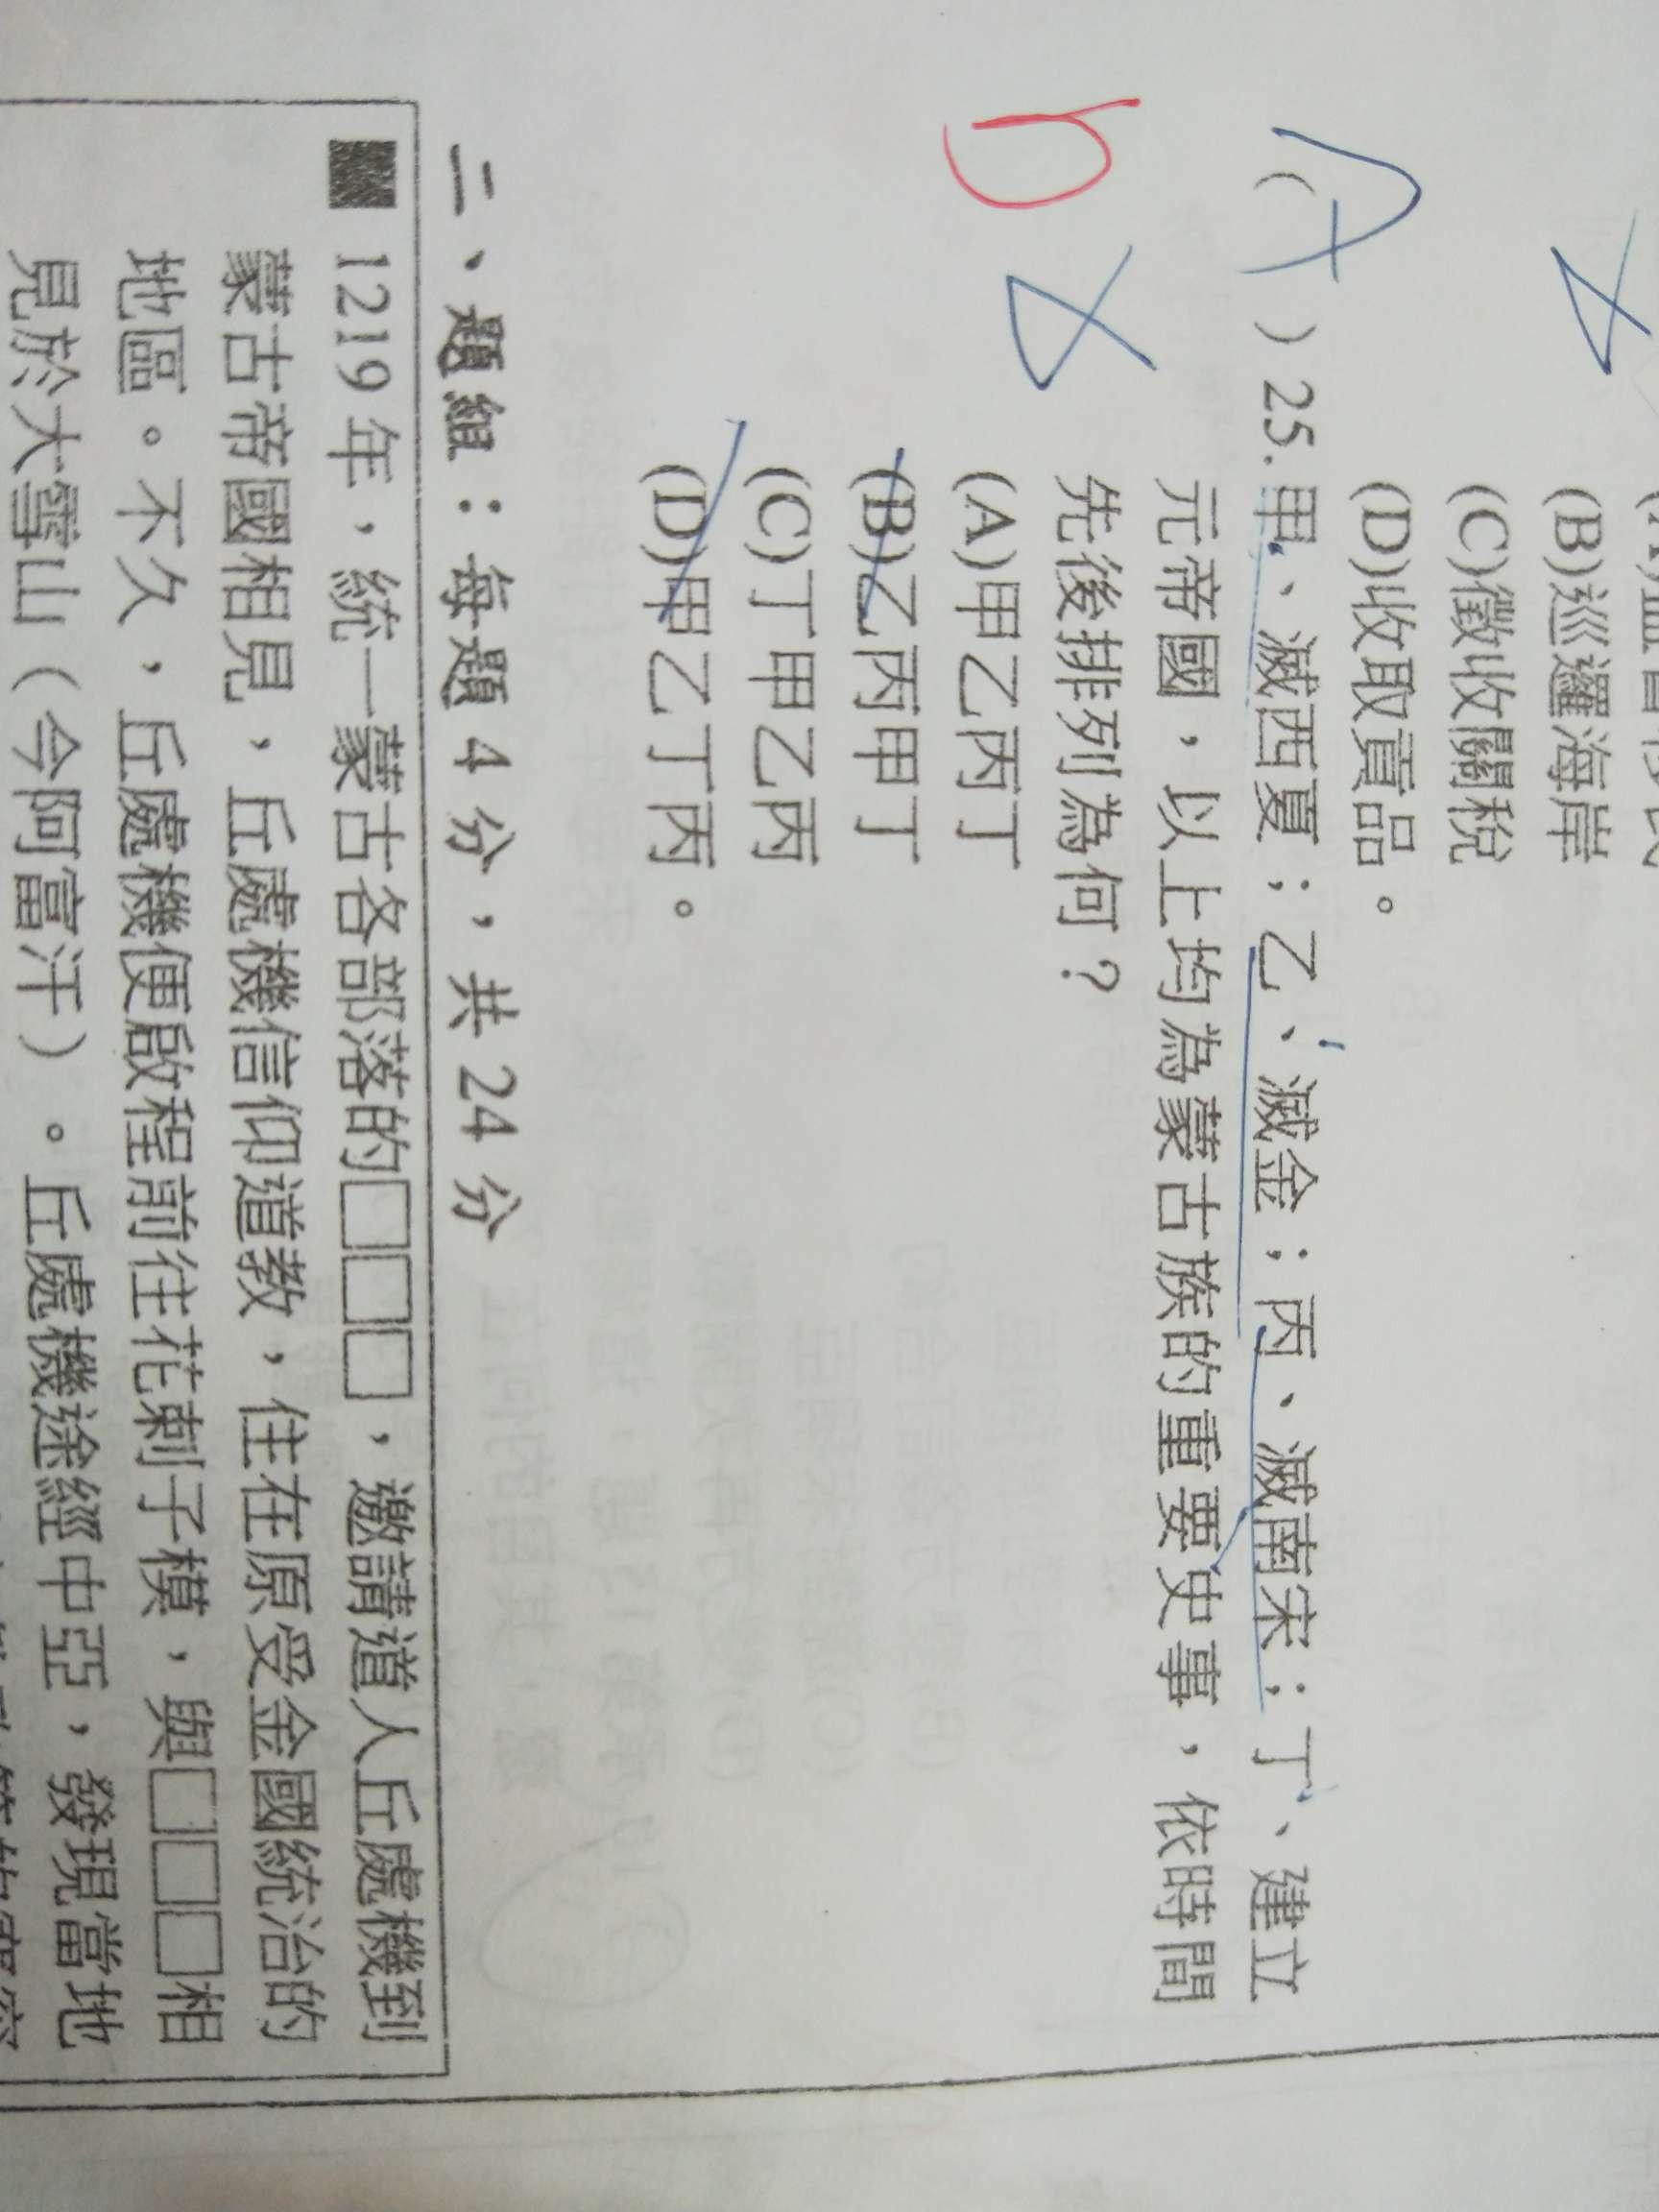 (B)巡邏海岸
(C)徵收關稅
(D)收取貢品。
(A)25.甲、滅西夏；乙、滅金；丙、滅南宋；丁、建立
元帝國，以上均為蒙古族的重要史事，依時間
先後排列為何？
(A)甲乙丙丁
(B)乙丙甲丁
(C)丁甲乙丙
(D)甲乙丁丙。
D
二、題組：每題4分，共24分
■ 1219年，統一蒙古各部落的□□□，邀請道人丘處機到
蒙古帝國相見，丘處機信仰道教，住在原受金國統治的
地區。不久，丘處機便啟程前往花剌子模，與□□□相
見於大雪山（今阿富汗）。丘處機途經中亞，發現當地